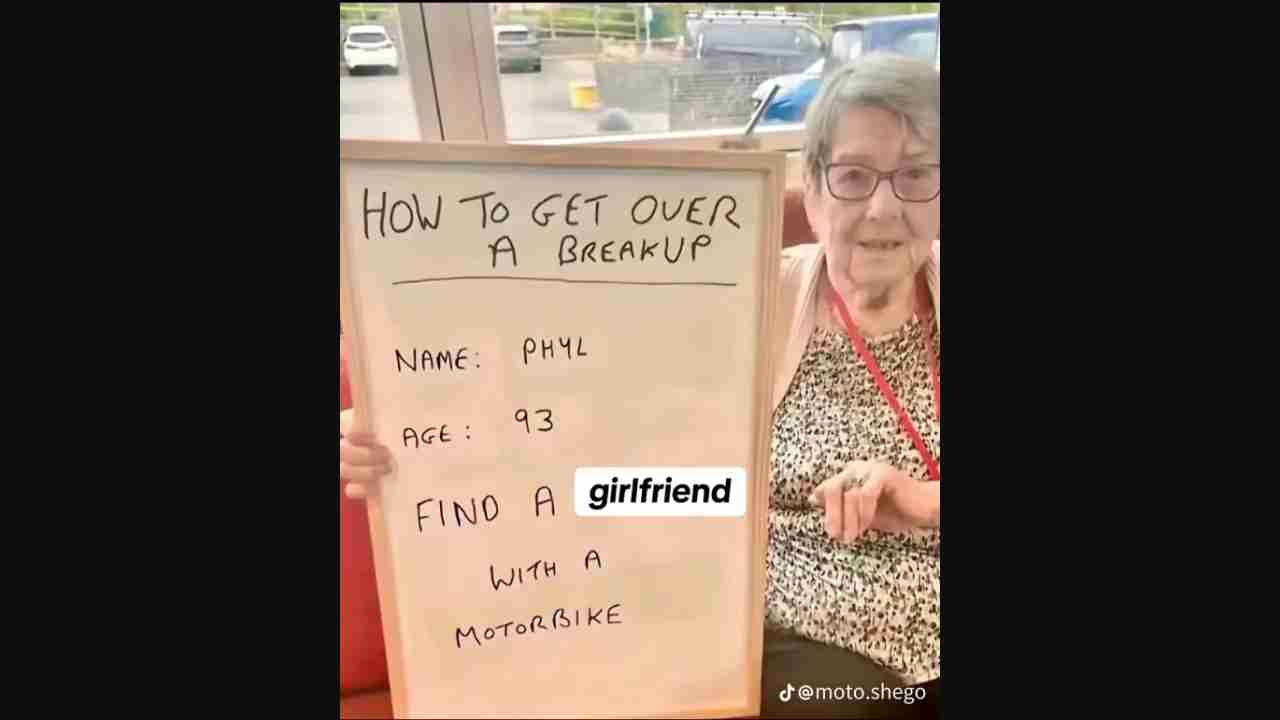 HOW TO GET OVER
A BREAKUP
NAME: PHYL
AGE: 93
FIND A girlfriend
WITH A
MOTORBIKE
@moto.shego